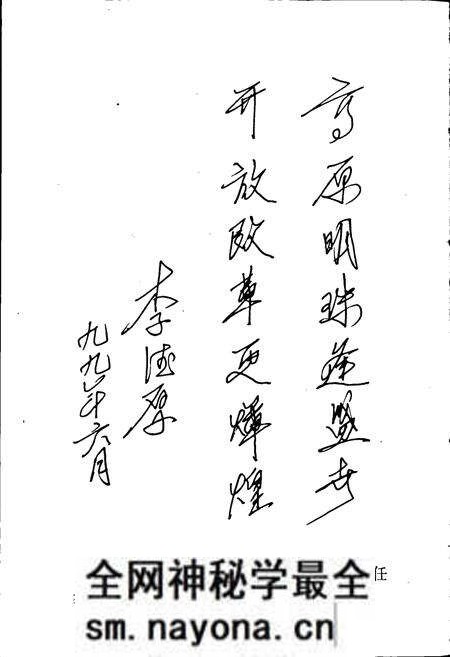 高原明珠逢盛世
开放改革更辉煌
李德厚
九九年六月
任
全网神秘学最全
sm.nayona.cn